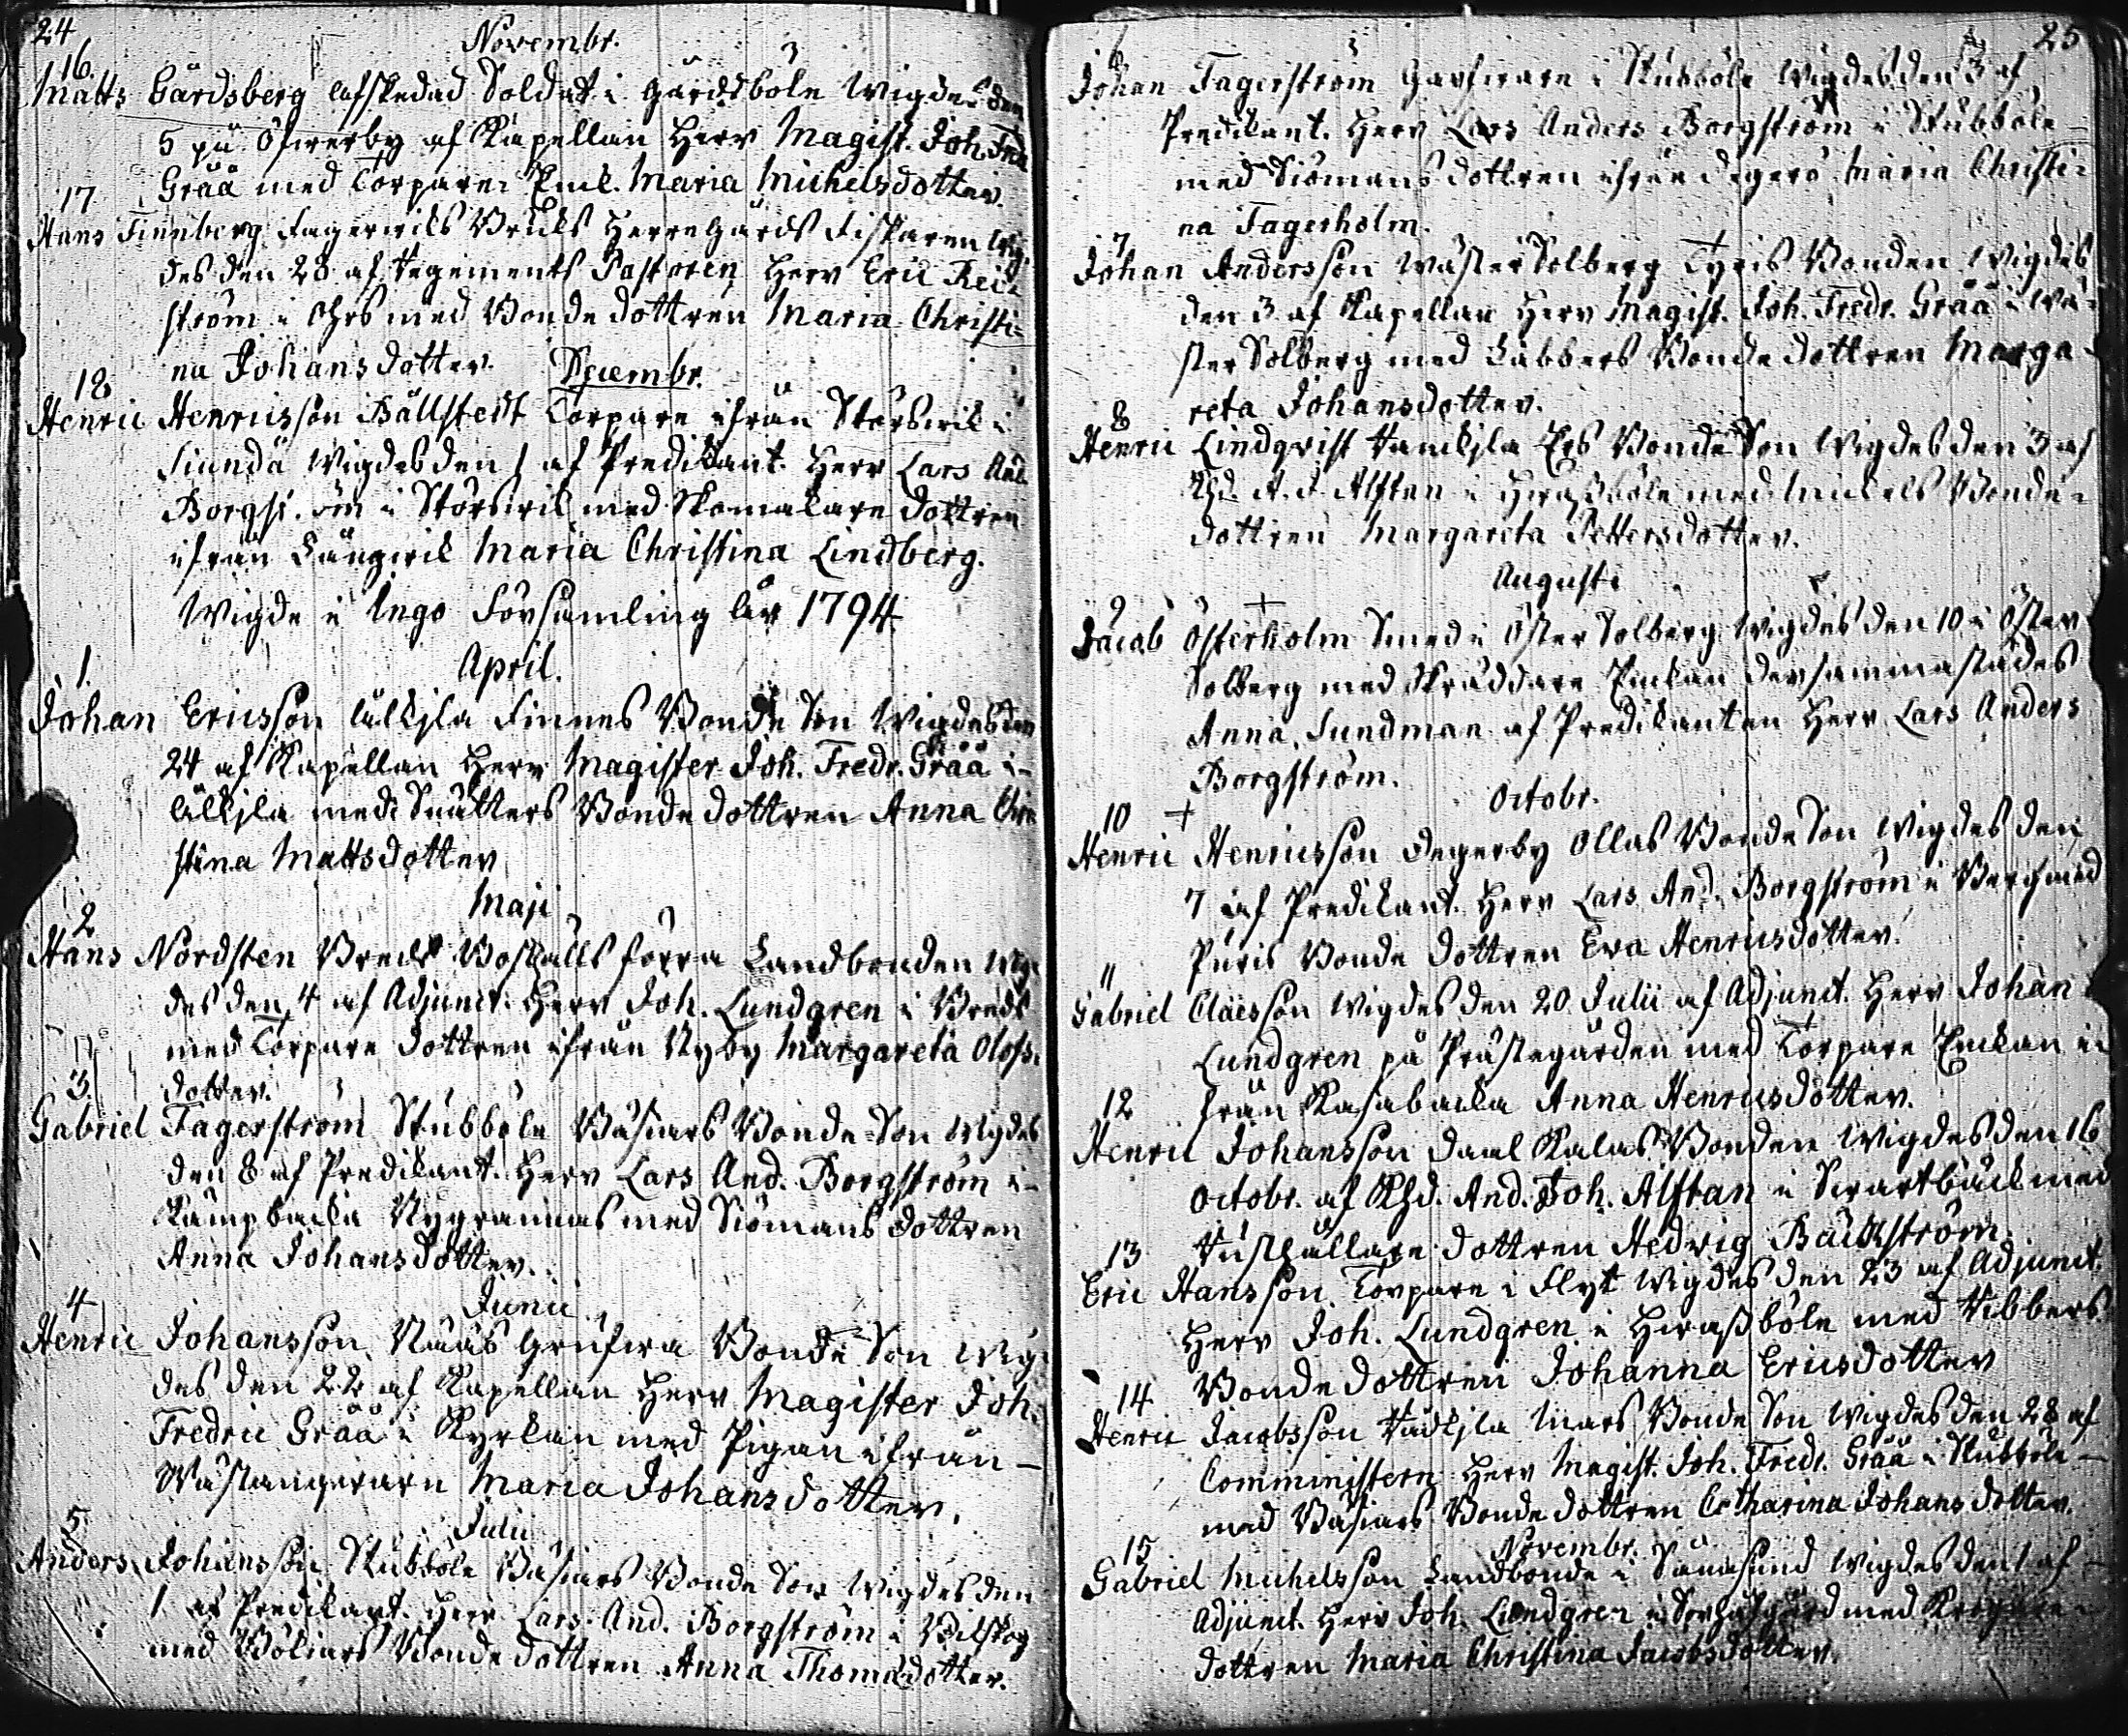 24
Novembr.
16.
Matts Gårdsberg afskedad Soldat i Gårdsböle Wigdes den
5 på Öfwerby af Kapellan Herr Magist. Joh. Fredr.
Gråå med Torpare Enk. Maria Michelsdotter.
17
Hans Finnberg Fagerwiks Bruks Herregårds Fiskaren Wig-
des den 28 af Regements Pastoren Herr Eric
ström i med Bonde dottren Maria Christi-
na Johansdotter.
Decembr.
18
Henric Henricsson Bällstedt Torpare ifrån Störswik i
Siundå Wigdes den 1 af Predikant. Herr Lars And.
Borgström i Störswik med Skomakare dottren
ifrån Långwik Maria Christina Lindberg.
Wigde i Ingo Församling år 1794.
April.
1.
Johan Ericsson Finnes Bonde Son Wigdes den
24 af Kapellan Herr Magister Joh. Fredr. Gråå i
med Bonde dottren Anna Chri
stina Mattsdotter
Maji
2
Hans Nordsten Breds Boställs förra Landbonden Wig-
des den 4 af Adjunct. Herr Joh. Lundgren i Breds
med Torpare dottren ifrån Nyby Margareta Olofs-
dotter.
3.
Gabriel Fagerström Stubböle Båsiars Bonde Son Wigdes
den 8 af Predikant. Herr Lars And. Borgström i
Kämpbacka Nygrannas med Siömans dottren
Anna Johansdotter.
Junii
4
Henric Johansson Näås Bonde Son Wig-
des den 22 af Kapellan Herr Magister Joh.
Fredric Gråå i Kyrkan med Pigan ifrån
Maria Johansdotter.
Julii
5
Anders Johansson Stubböle Båsiars Bonde Son Wigdes den
1 af Predikant. Herr Lars And. Borgström i Wilskog
med Bonde dottren Anna Thomasdotter.
25
6
Johan Fagerström Garfware i Stubböle Wigdes den 3 af
Predikant. Herr Lars Anders Borgström i Stubböle
med Siömans dottren ifrån Degerö Maria Christi-
na Fagerholm.
7
Johan Andersson Wäster Solberg Tyris Bonden Wigdes
den 3 af Kapellan Herr Magist. Joh. Fredr. Gråå i Wä-
ster Solberg med Labbers Bonde dottren Marga-
reta Johansdotter.
8
Henric Lindqvist Ers Bonde Son Wigdes den 3 af
Khd. A. J. Alftan i Hwassböle med Mickels Bonde-
dottren Margareta Pettersdotter.
Augusti
9
Jacob Österholm Smed i Öster Solberg Wigdes den 10 i Öster
Solberg med Skräddare Enkan dersammastädes
Anna Sundman af Predikanten Herr Lars Anders
Borgström.
Octobr.
10
Henric Henricsson Degerby Ollas Bonde Son Wigdes den
7 af Predikant. Herr Lars And. Borgström i Berg med
Puris Bonde dottren Ewa Henricsdotter.
11
Gabriel Claesson Wigdes den 20 Julii af Adjunct. Herr Johan
Lundgren på Prästegården med Torpare Enkan i
från Kasabacka Anna Henricsdotter.
12
Henric Johansson Daal Kalas Bonden Wigdes den 16
Octobr. af Khd. And. Joh. Alftan i Swartbäck med
Rusthållare dottren Hedwig Bäckström.
13
Eric Hansson Torpare i Flyt Wigdes den 23 af Adjunct.
Herr Joh. Lundgren i Hwassböle med Wibbers
Bonde dottren Johanna Ericsdotter
14
Henric Jacobsson Mars Bonde Son Wigdes den 28 af
Comministern Herr Magist. Joh. Fredr. Gråå i Stubböle
med Båsiars Bonde dottren Catharina Johansdotter.
Novembr.
15
Gabriel Michelsson Landbonde i Wigdes den 1 af
Adjunct. Herr Joh. Lundgren i med
dottren Maria Christina Jacobsdotter.